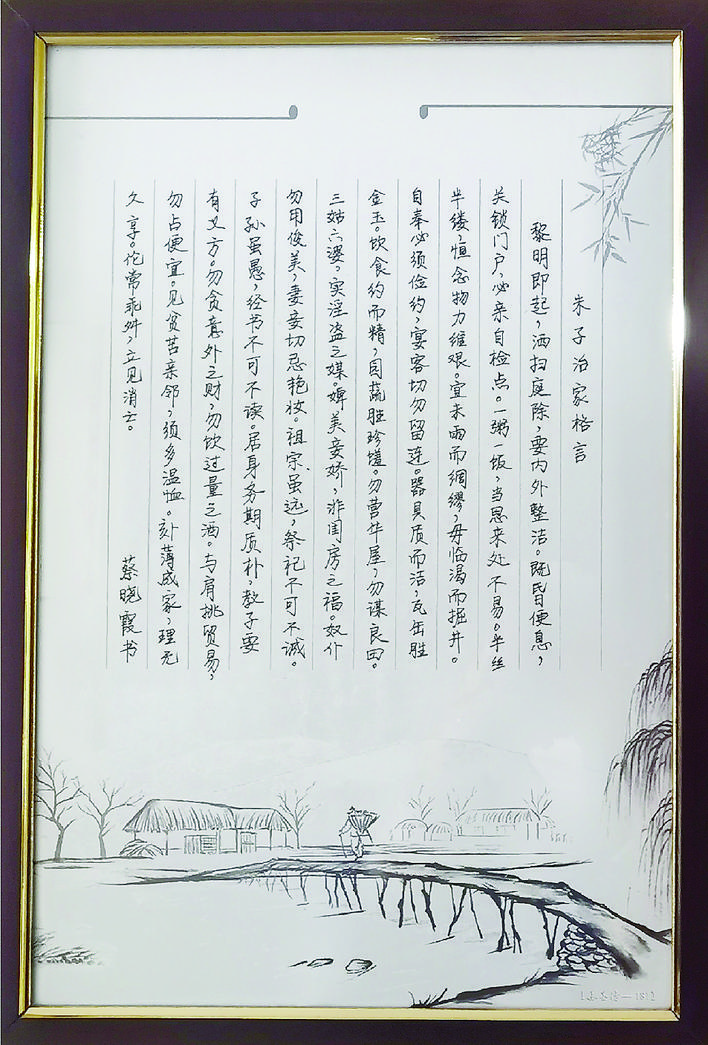 朱子治家格言
黎明即起，洒扫庭除，要内外整洁。既昏便息，
关锁门户，必亲自检点。一粥一饭，当思来处不易。半丝
半缕，恒念物力维艰。宜未雨而绸缪，毋临渴而掘井。
自奉必须俭约，宴客切勿留连。器具质而洁，瓦缶胜
金玉。饮食约而精，园蔬胜珍馐。勿营华屋，勿谋良田。
三姑六婆，实淫盗之媒。婢美妾娇，非闺房之福。奴仆
勿用俊美，妻妾切忌艳妆。祖宗虽远，祭祀不可不诚。
子孙虽愚，经书不可不读。居身务期质朴，教子要
有义方。勿贪意外之财，勿饮过量之酒。与肩挑贸易，
勿占便宜。见贫苦亲邻，须多温恤。刻薄成家，理无
久享。伦常乖舛，立见消亡。
蔡晓霞书